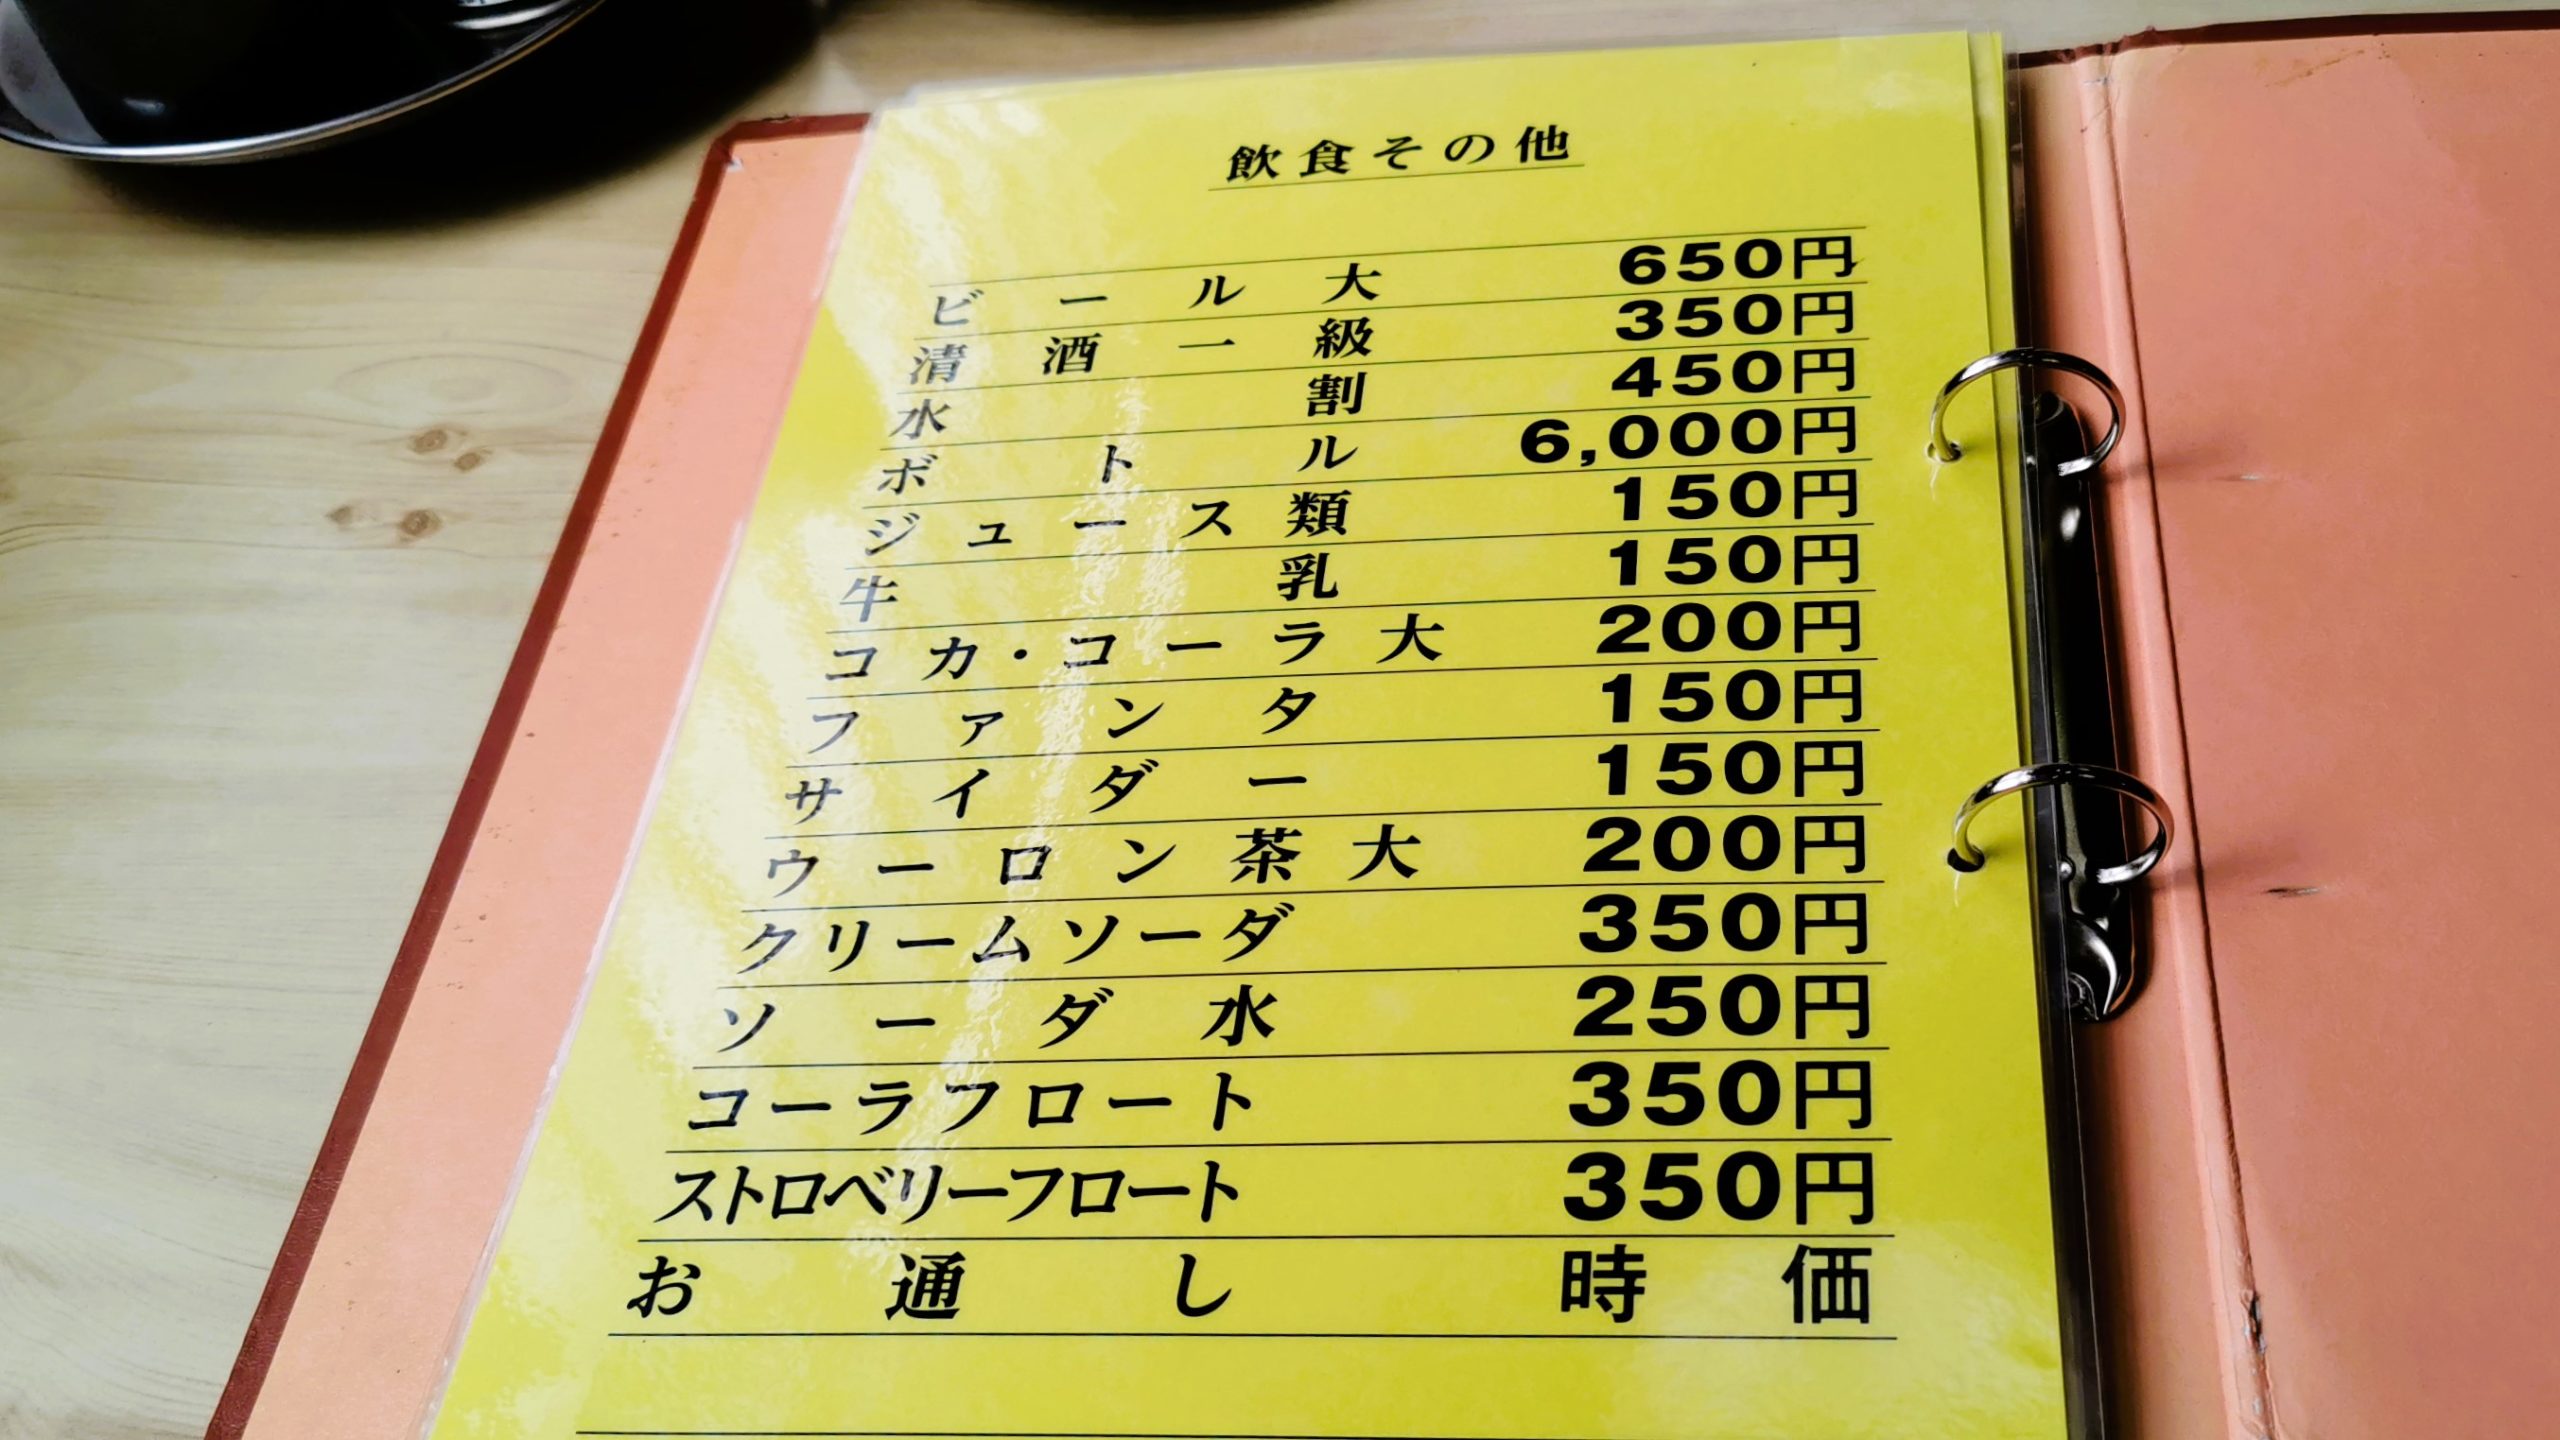 飲食その他
ビール大 650円
清酒一級 350円
水割 450円
ボトル 6,000円
ジュース類 150円
牛乳 150円
コカ・コーラ大 200円
ファンタ 150円
サイダー 150円
ウーロン茶大 200円
クリームソーダ 350円
ソーダ水 250円
コーラフロート 350円
ストロベリーフロート 350円
お通し 時価